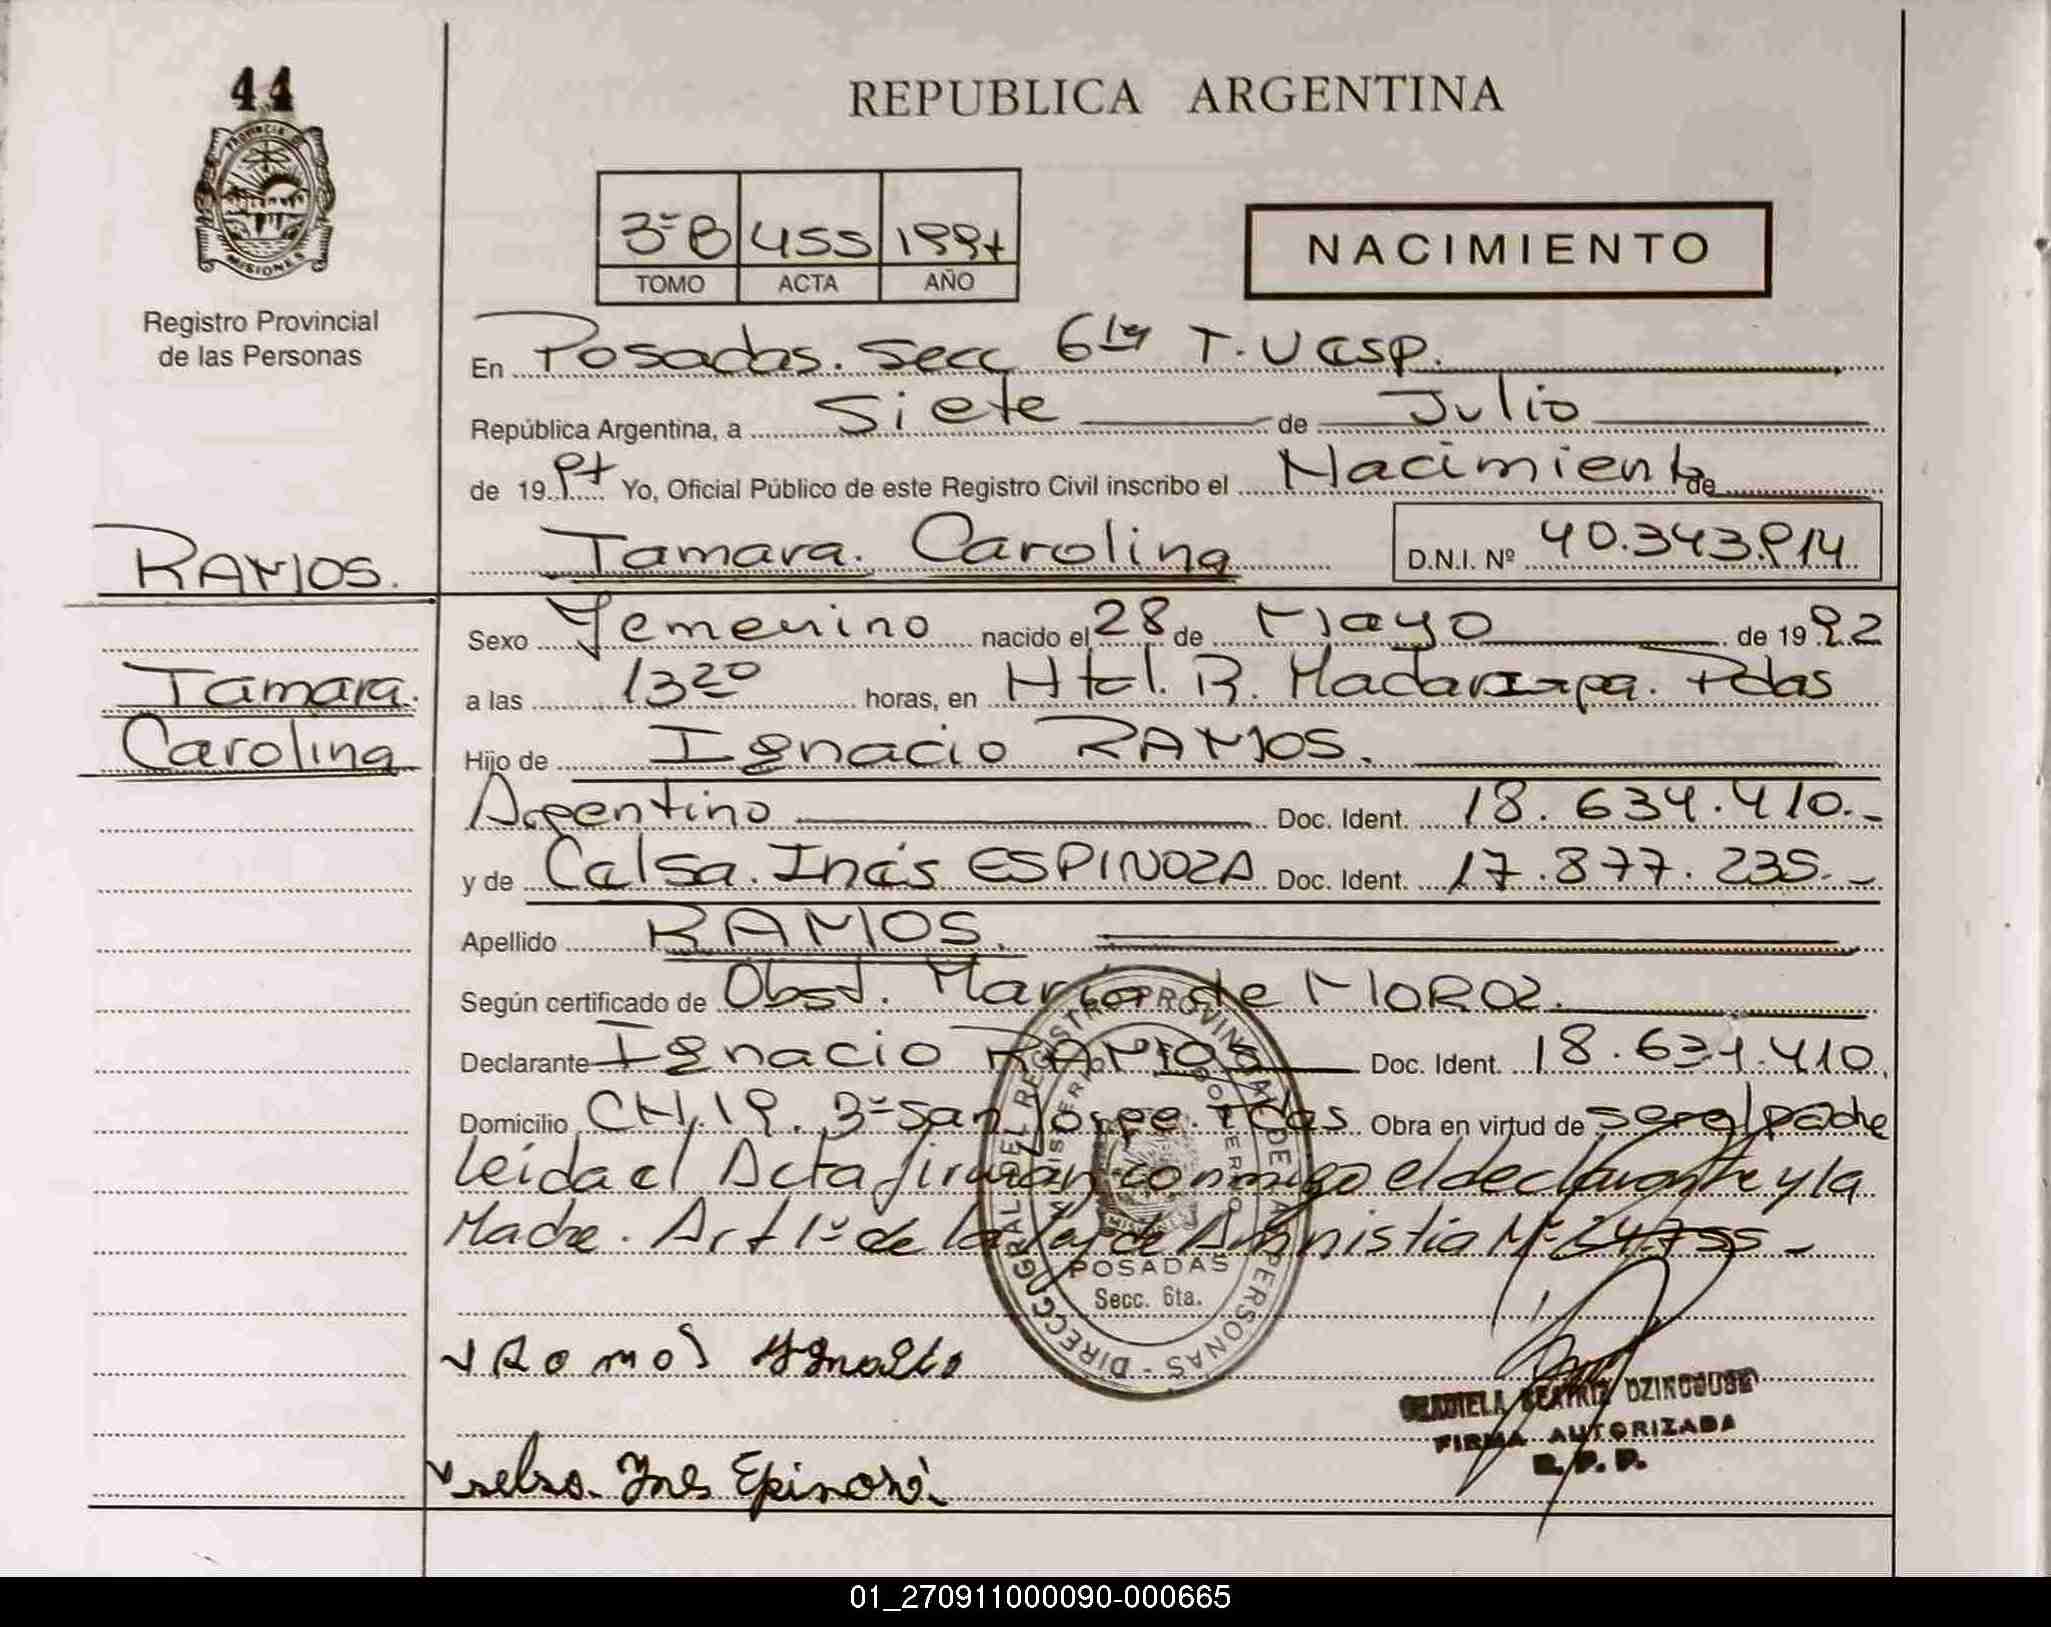 44
REPUBLICA ARGENTINA
PROVINCIA DE
MISIONES
Registro Provincial
de las Personas
3º B 455 1997
TOMO ACTA AÑO
NACIMIENTO
En Posadas. Secc 6ta T. Vesp.
República Argentina, a Siete de Julio
de 1997 Yo, Oficial Público de este Registro Civil inscribo el Nacimiento de
RAMOS. Tamara. Carolina D.N.I. Nº 40.343.914
Sexo Femenino nacido el 28 de Mayo de 1992
Tamara. a las 13 20 horas, en Htal. R. Madariaga. Pdas
Carolina Hijo de Ignacio RAMOS.
Argentino Doc. Ident. 18.634.410.-
y de Celsa. Inés ESPINOZA Doc. Ident. 17.877.235.-
Apellido RAMOS.
Según certificado de Obst. María de MOROZ.
Declarante Ignacio RAMOS Doc. Ident. 18.634.410.
Domicilio CH.19. 3º San Jorge. Pdas Obra en virtud de ser el padre
Leída el Acta firman conmigo el declarante y la
Madre. Art 1º de la Ley de Amnistía Nº 24.755 -
DIRECC. GRAL. DEL REGISTRO PROVINCIAL DE LAS PERSONAS -
MINISTERIO DE GOBIERNO
MISIONES
POSADAS
Secc. 6ta.
Ramos Ignacio
BEATRIZ
FIRMA AUTORIZADA
R.P.P.
selsa. Ines Epinosa
01_270911000090-000665